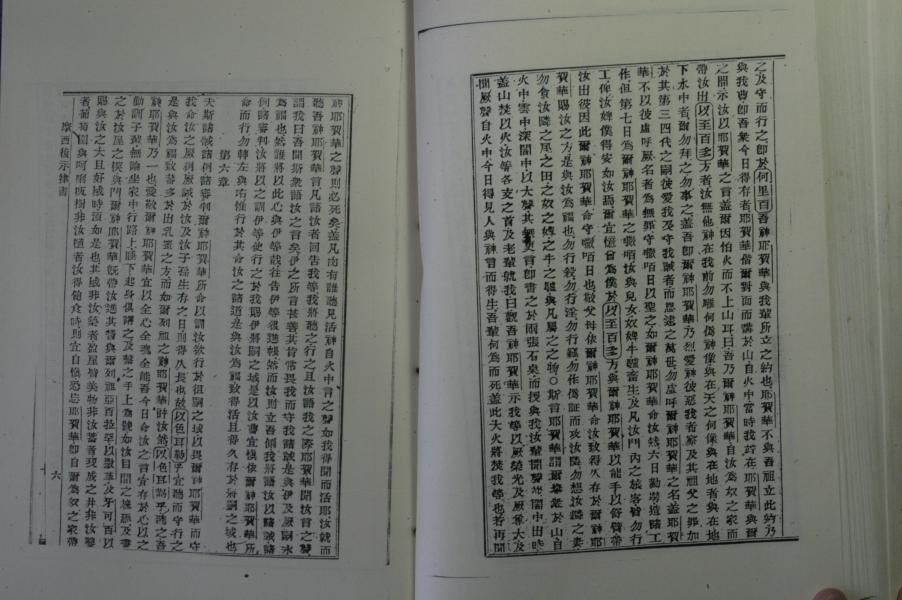 之及守而行之卽於何里百吾神耶賀華與我輩所立之約也耶賀華不與吾祖立此約乃
與我曹卽吾衆今日得存者耶賀華偕爾對面而講於山自火中當時我跕在耶賀華與爾
之間示汝以耶賀華之言蓋爾因怕火而不上山耳曰吾乃爾神耶賀華自汝為奴之家而
帶汝出以至百多方者汝無他神在我前勿雕何偶神像與在天之何像與在地者與在地
下水中者爾勿拜之勿事之蓋吾卽爾神耶賀華乃烈愛神彼惡我者察及其祖父之罪如
於其第三四代之嗣彼愛我及守我誡者而恩逮之萬世勿虛呼爾神耶賀華之名蓋耶賀
華不以彼虛呼厥名者為無罪守咟日以聖之如爾神耶賀華命汝焉六日勤勞造諸工
作但第七日為爾神耶賀華之咟汝與兒女奴婢牛驢畜生及凡汝門內之旅客皆勿行
工俾汝婢僕得安如汝焉爾宜憶曾為僕於以至百多方與爾神耶賀華以能手以舒臂帶
汝出彼因此爾神耶賀華命守咟日也敬父母依爾神耶賀華命汝致得久存於爾神耶
賀華賜汝之方是與汝為福也勿行殺勿行淫勿行竊勿作偽証而攻汝隣勿想汝隣之妻
勿貪汝隣之屋之田之奴之婢之牛之驢與凡屬之之物○斯言耶賀華謂爾衆於山自
火中雲中深闇中以大聲其無更言卽書之於兩張石而授與我汝輩聞聲闇中出時
蓋山焚以火汝等各支之首及老輩就我曰觀吾神耶賀華示我等以厥榮光及厥尊大及
聞厥聲自火中今日得見人與神言而得生吾輩何為而死蓋此大火將焚我等也若再聞
神耶賀華之聲則必死矣蓋凡肉有誰聽見活神自火中言之聲如我得聞而活耶汝就而
聽吾神耶賀華言凡諸汝者回告我等我將聽之行之且汝語我之際耶賀華聞汝言之聲
謂我曰吾聞斯衆語汝之言矣伊之所言甚善其肯常畏我而守我諸誡是與伊及厥嗣永
為福也然誰將以此心與伊等哉往告伊等復進帳然而汝則立吾側我將語汝以諸誡諸
例諸審判汝將以之訓伊等使行之於我賜伊將嗣之域是以汝曹宜慎依爾神耶賀華所
命而行勿轉左與右惟行於其命汝之諸道是為汝為福致得活且得久存於將嗣之域也
第六章
夫斯諸誡諸例諸審判爾神耶賀華所命以訓汝欲行於徂嗣之域以畏爾神耶賀華而守
我命汝之厥例厥誡於汝及汝子孫生存之日則得久長也故以色耳勒乎宜聽而守行之
是與汝為福致蕃多於出乳蜜之方而如爾列祖之神耶賀華許汝然以色耳勒乎聽之吾
神耶賀華乃一也愛敬爾神耶賀華宜以全心全魂全能吾今日命汝之言宜存於心以之
勤訓子輩無論坐家中行路上臥下起身俱講之及繫之手上為號如汝目間之及書
之於汝屋之楔與門爾神耶賀華旣帶汝進其誓與爾列祖亞百拉罕以撒革及牙可百以
賜與汝之大且好城時須如是也其城非汝築者盈屋皆美物非汝蓄者現成之井非汝鑿
者葡萄園與樹非汝植者汝得飽食時則宜自慎恐忘耶賀華卽自爾為奴之家帶
摩西復示律書
六